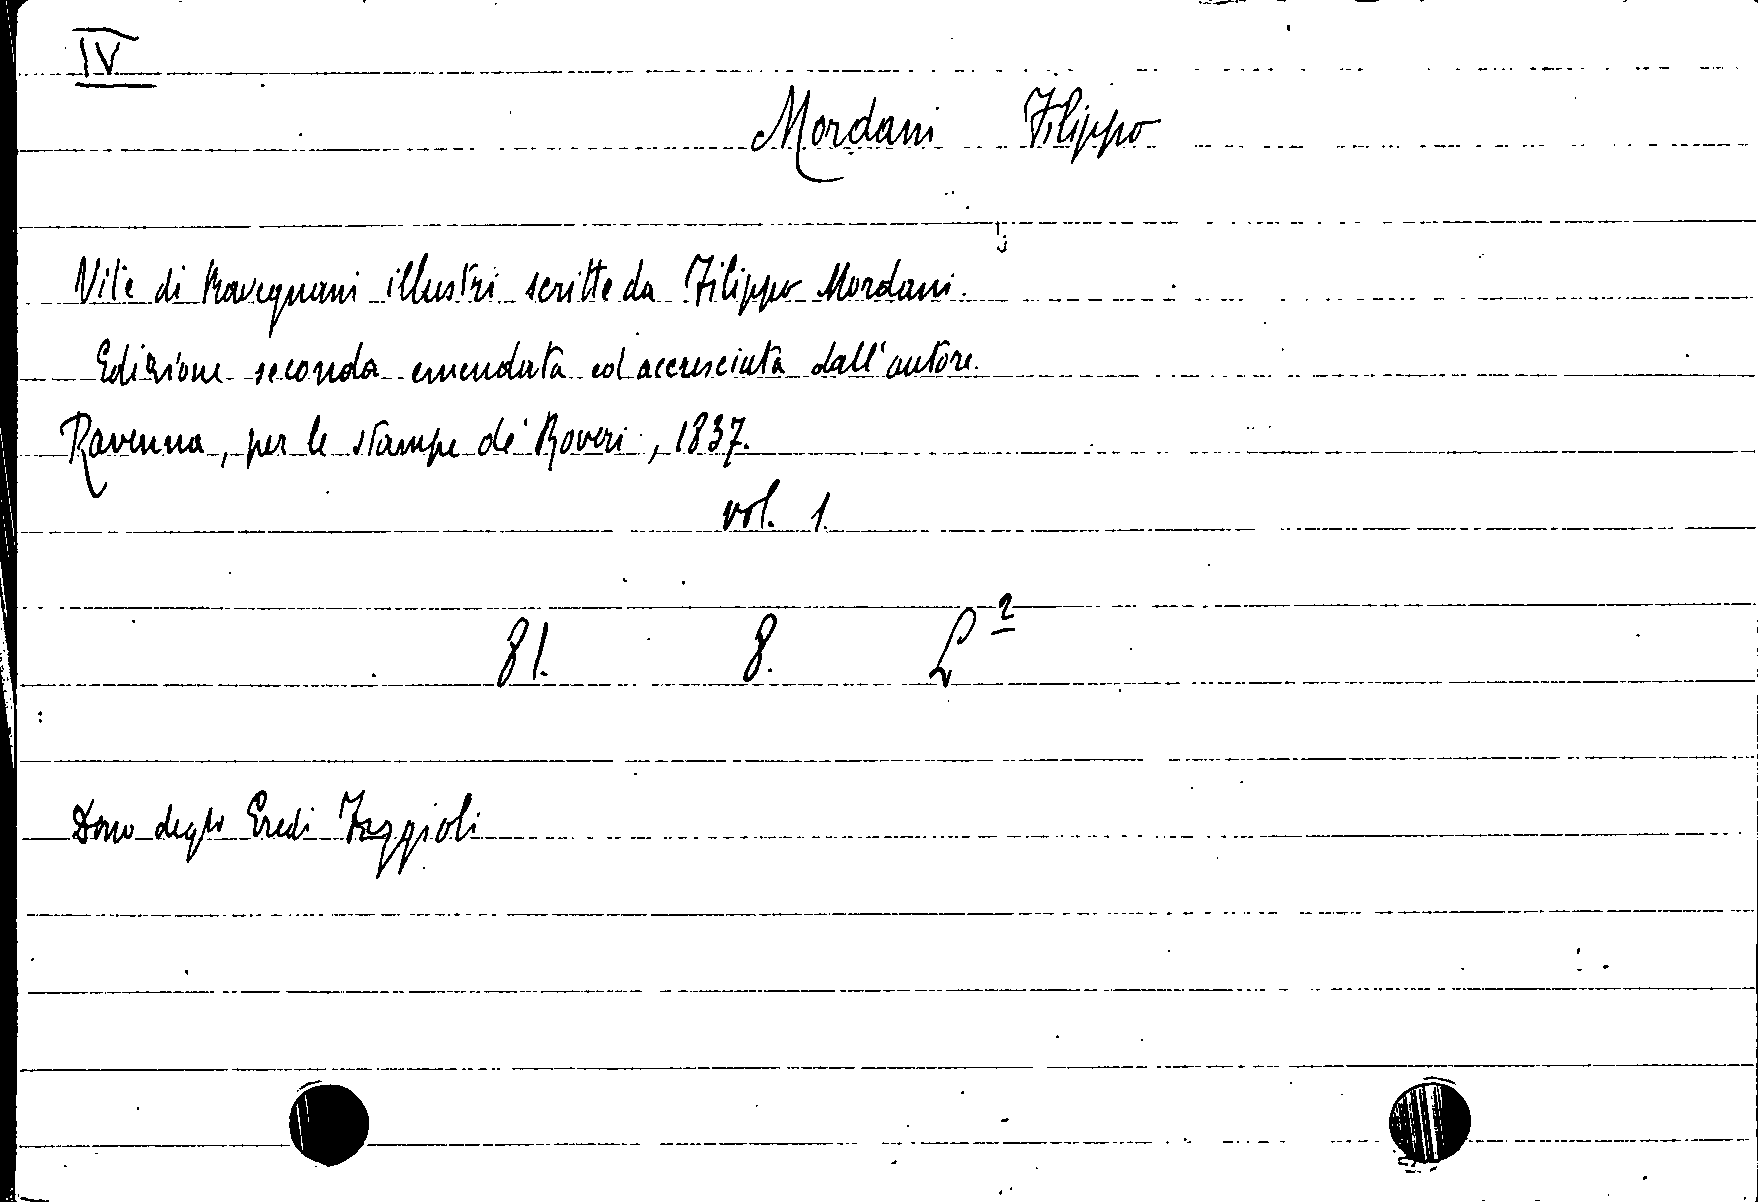 IV
Mordani Filippo
Vite di Ravegnani illustri scritte da Filippo Mordani.
Edizione seconda emendata ed accresciuta dall'autore.
Ravenna, per le stampe de' Roveri, 1837.
vol. 1.
81. 8. L²
Dono degli Eredi Faggioli